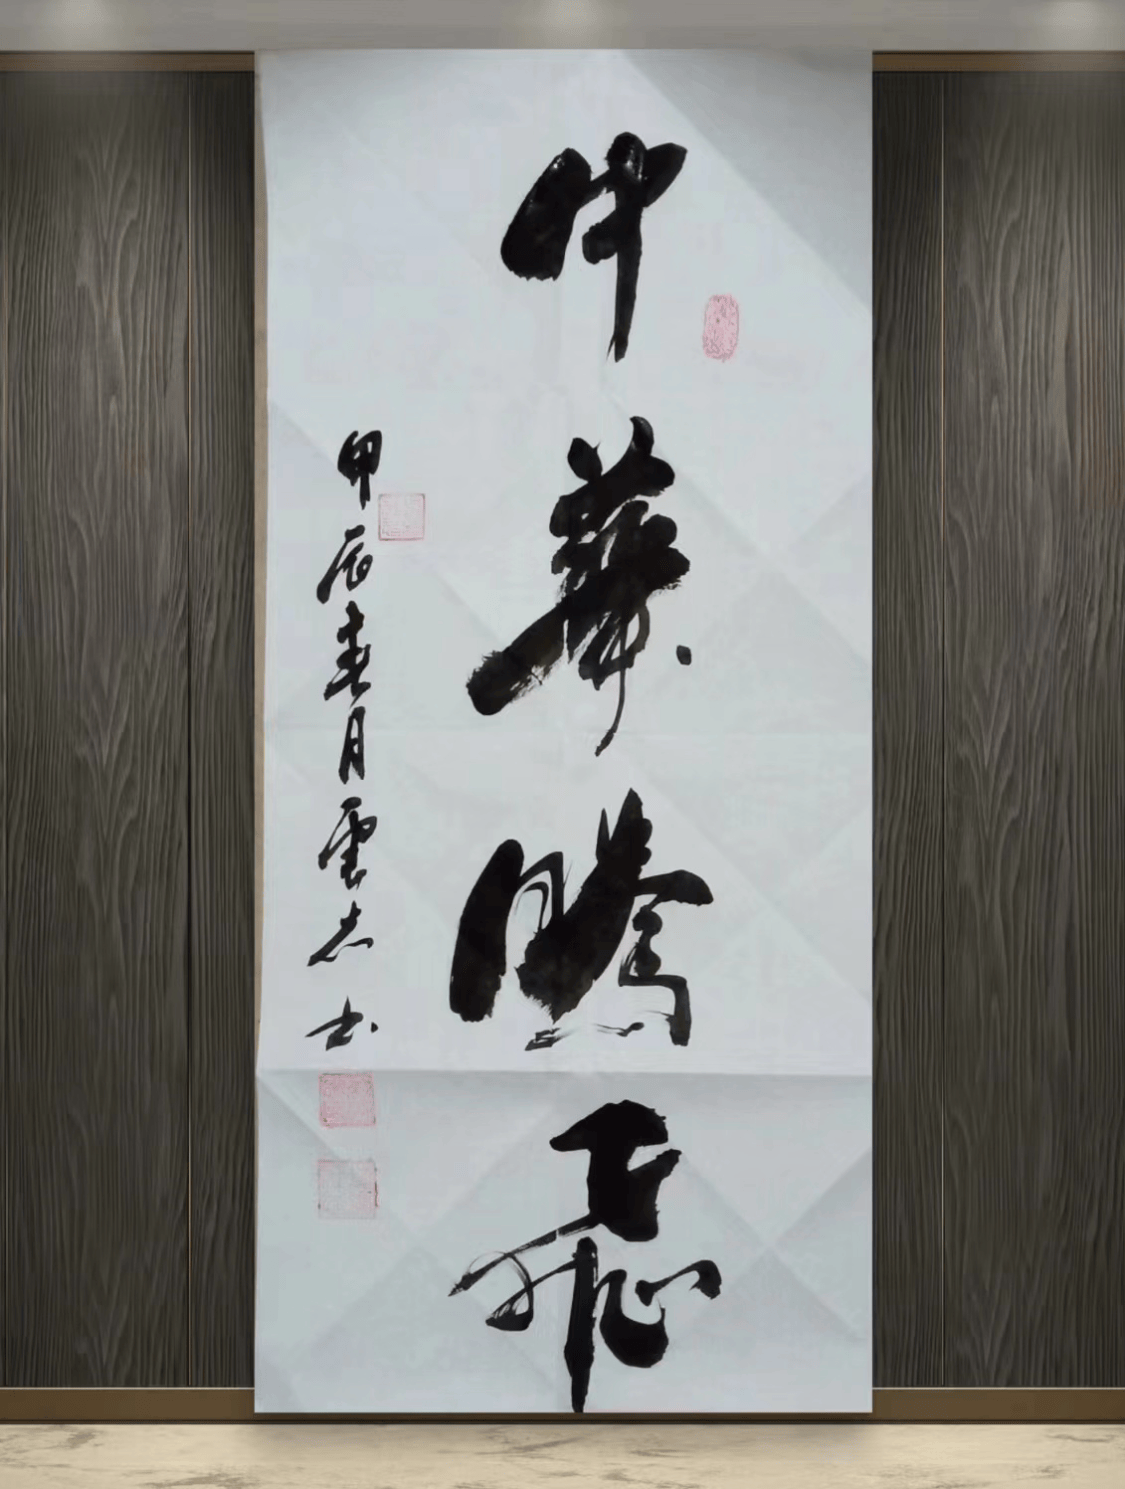 中華騰飛
甲辰春月雲志书